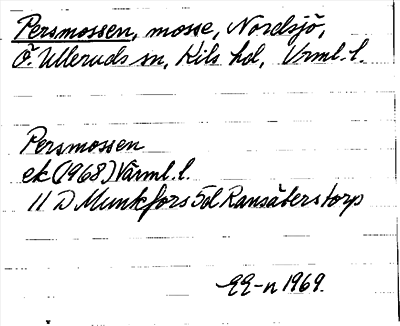 Persmossen, mosse, Nordsjö,
Ö. Ulleruds sn, Kils hd, Vrml. l.
Persmossen
ek (1968) Värml. l.
11 D Munkfors 5d Ransäterstorp
1969.